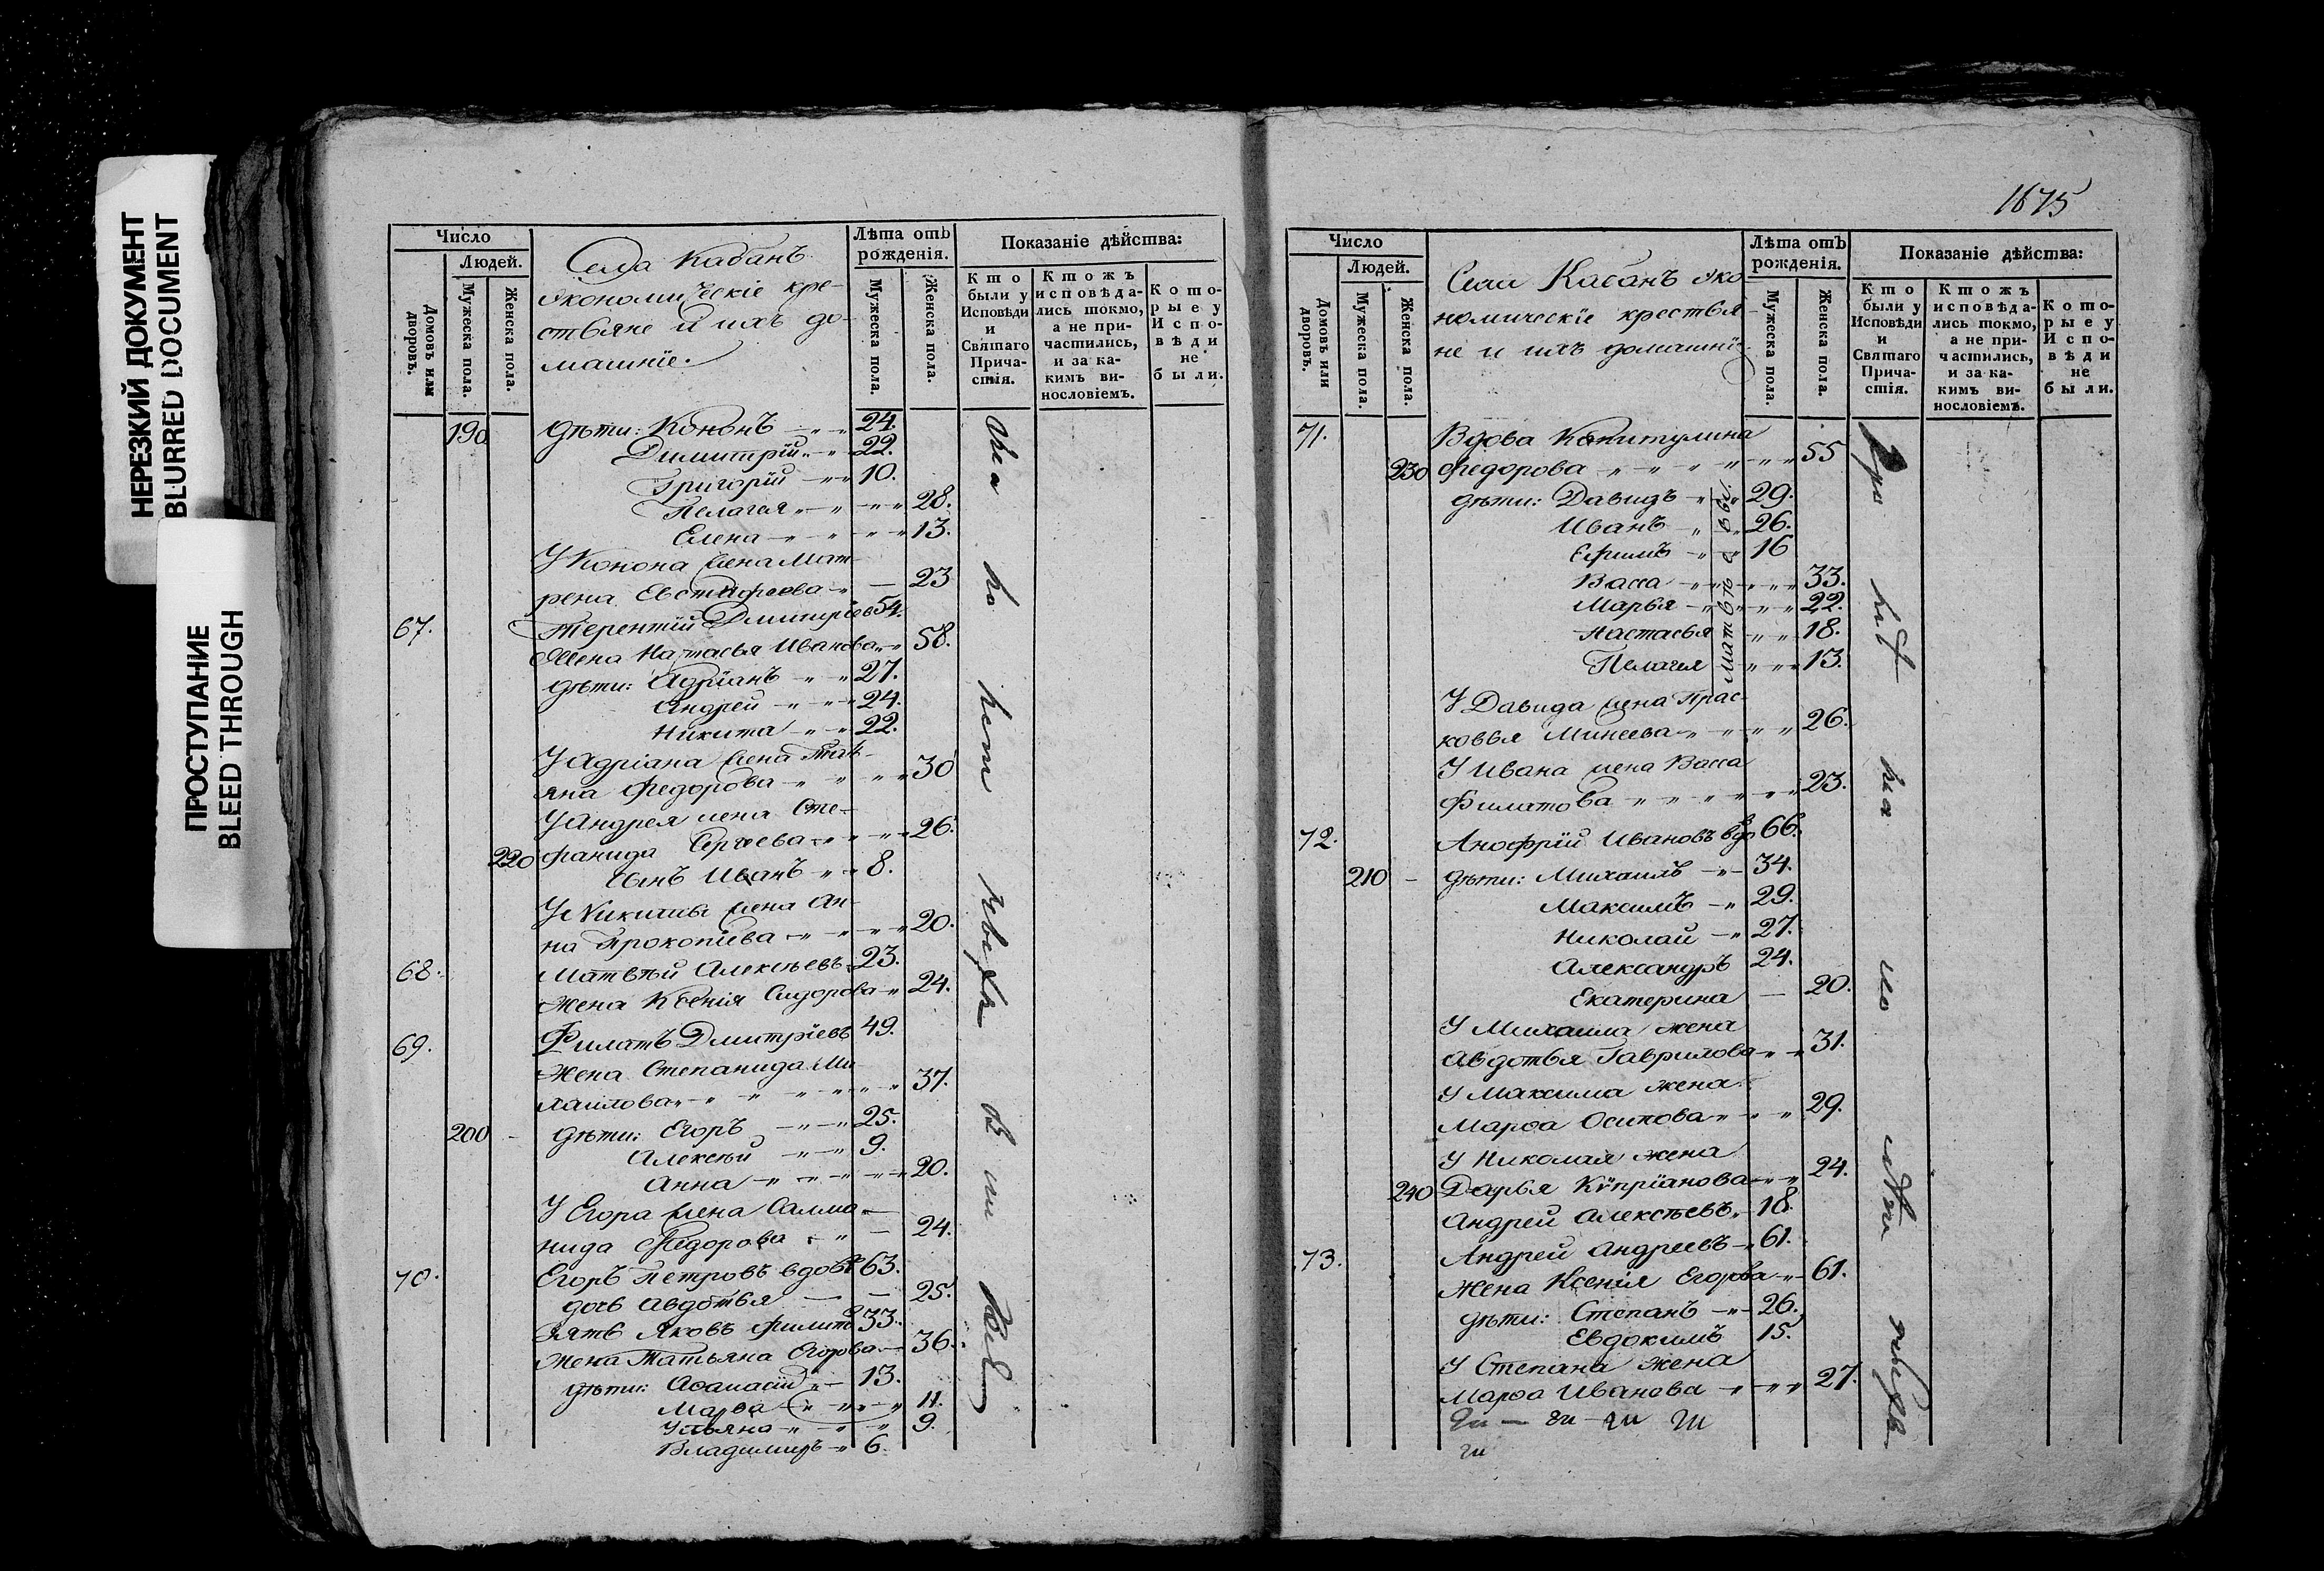 НЕРЕЗКИЙ ДОКУМЕНТ
BLURRED DOCUMENT
ПРОСТУПАНИЕ
BLEED THROUGH
Число
Людей.
Домовъ или дворовъ.
Мужеска пола.
Женска пола.
Села Кабанъ
экономическіе кре-
стьяне и ихъ до-
машніе.
Лѣта отъ рожденія.
Мужеска пола.
Женска пола.
Показаніе дѣйства:
Кто были у Исповѣди и Святаго Причастія.
Ктожъ исповѣда-лись токмо, а не при-частились, и за ка-кимъ ви-нословіемъ.
Кото-рые у Испо-вѣди не были.
190 дѣти: Кононъ 24.
Димитрій 22.
Григорій 10.
Пелагея 28.
Елена 13.
У Конона жена Мат-
рена Евстифеева 23
67. Терентій Дмитріев 54.
Жена Настасья Иванова 58.
дѣти: Адріанъ 27.
Андрей 24.
Никита 22.
У Адріана жена Тать-
яна Федорова 30
У Андрея жена Сте-
220 фанида Сергѣева 26.
сынъ Иванъ 8.
У Никиты жена Ан-
на Прокопіева 20.
68. Матвѣй Алексѣевъ 23.
Жена Ксенія Сидорова 24.
69. Филатъ Дмитріевъ 49.
Жена Степанида Ми
хаилова 37.
200 дѣти: Егоръ 25.
Алексѣй 9.
Анна 20.
У Егора жена Салма
нида Федорова 24.
70. Егоръ Петровъ вдовъ 63.
дочь Авдотья 25.
Зять Яковъ Филипо 33.
Жена Татьяна Егорова 36.
дѣти: Аѳанасій 13.
Марѳа 11.
Ульяна 9.
Владимиръ 6.
1675
Число
Людей.
Домовъ или дворовъ.
Мужеска пола.
Женска пола.
Села Кабанъ эко
номическіе крестья-
не и ихъ домашніе
Лѣта отъ рожденія.
Мужеска пола.
Женска пола.
Показаніе дѣйства:
Кто были у Исповѣди и Святаго Причастія.
Ктожъ исповѣда-лись токмо, а не при-частились, и за ка-кимъ ви-нословіемъ.
Кото-рые у Испо-вѣди не были.
71. Вдова Капитулина
230 Федорова 55
дѣти: Давидъ 29.
Иванъ 26.
Ефимъ 16
Васса 33.
Марья 22.
Настасья 18.
Пелагея 13.
У Давида жена Прас-
ковья Минеева 26.
У Ивана жена Васса
Филатова 23.
72. Анофрій Ивановъ вдо 66.
210 дѣти: Михаилъ 34.
Максимъ 29.
Николай 27.
Александръ 24.
Екатерина 20.
У Михаила жена
Авдотья Гаврилова 31.
У Максима жена
Марѳа Осипова 29.
У Николая жена
240 Дарья Кѵпріанова 24.
Андрей Алексѣевъ 18.
73. Андрей Андреевъ 61.
Жена Ксенія Егорова 61.
дѣти: Степанъ 26.
Евдокимъ 15.
У Степана жена
Марѳа Иванова 27.